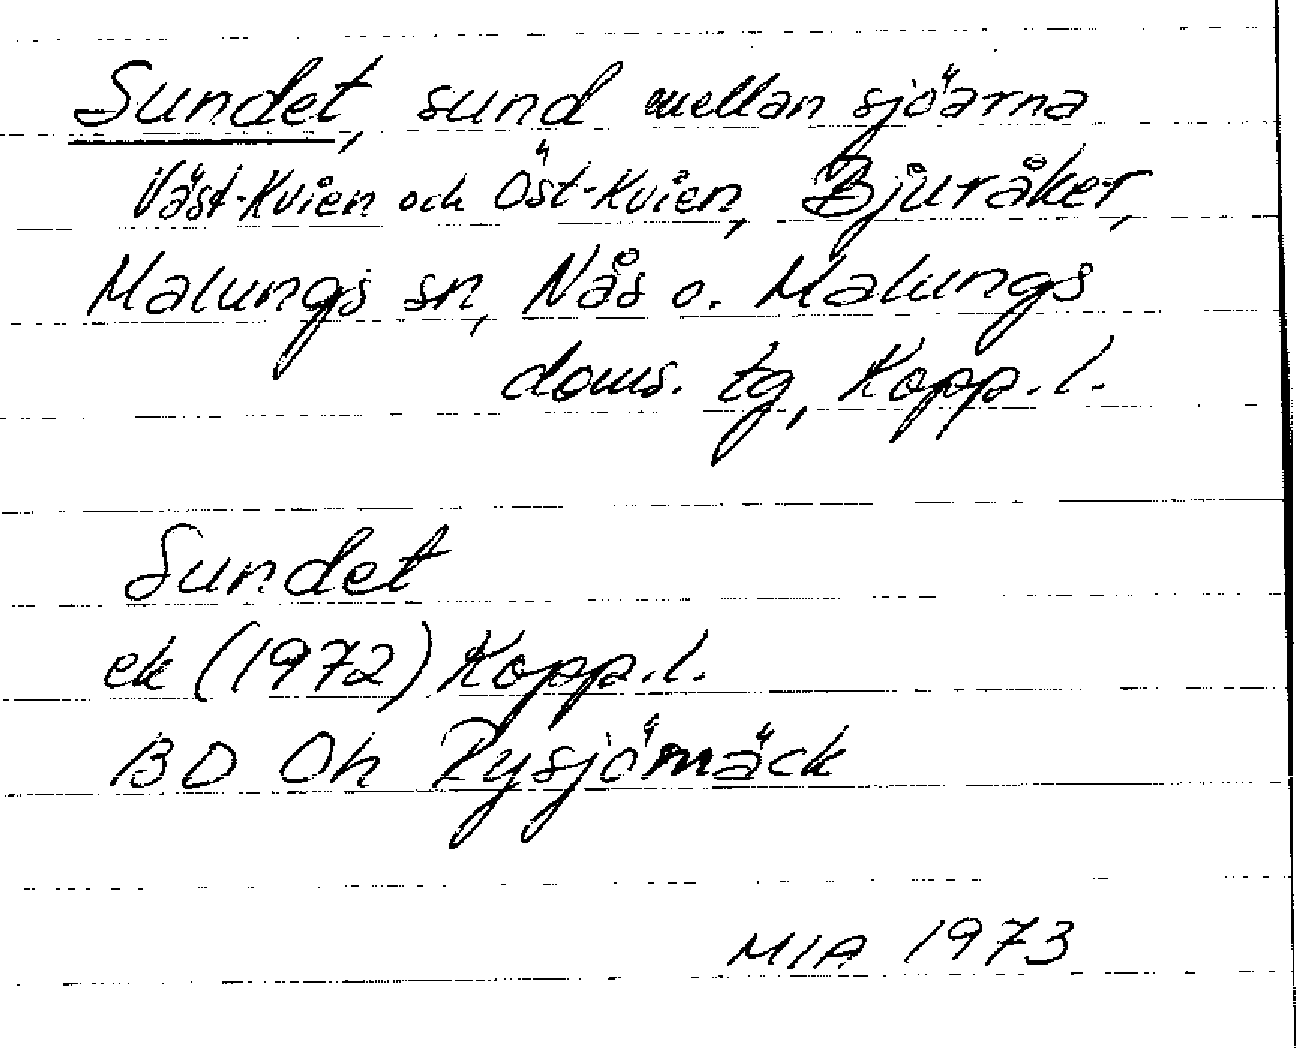 Sundet, sund mellan sjöarna
Väst-Kvien och Öst-Kvien, Bjuråker,
Malungs sn, Nås o. Malungs
doms. tg, Kopp. l.
Sundet
ek (1972) Kopp. l.
BD Oh Rysjömäck
MIA 1973